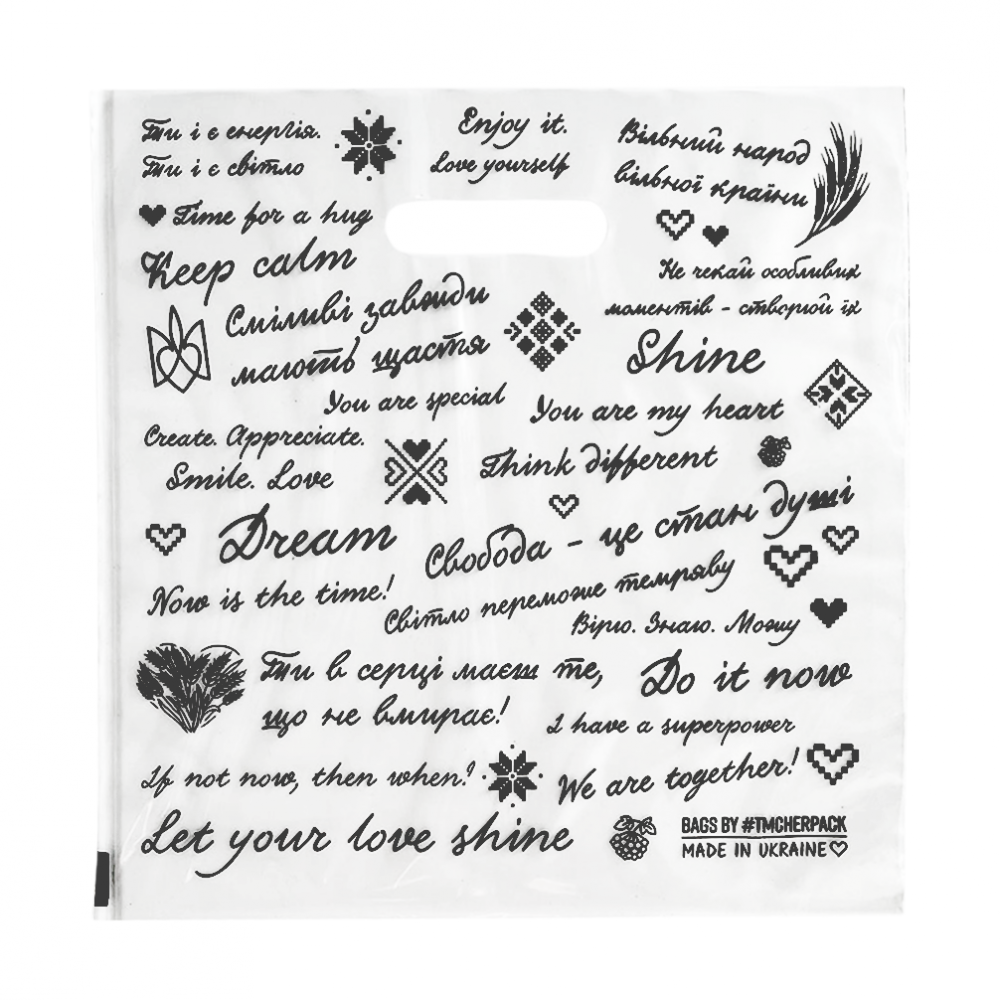 Ти і є енергія.
Ти і є світло
Enjoy it.
Love yourself
Вільний народ
вільної країни
Time for a hug
Keep calm
Не чекай особливих
моментів - створюй їх
Сміливі завжди
мають щастя
Shine
You are special
You are my heart
Create. Appreciate.
Smile. Love
Think different
Dream
Свобода - це стан душі
Now is the time!
Світло переможе темряву
Вірю. Знаю. Можу
Ти в серці маєш те,
що не вмирає!
Do it now
I have a superpower
If not now, then when?
We are together!
Let your love shine
BAGS BY #TMCHERPACK
MADE IN UKRAINE